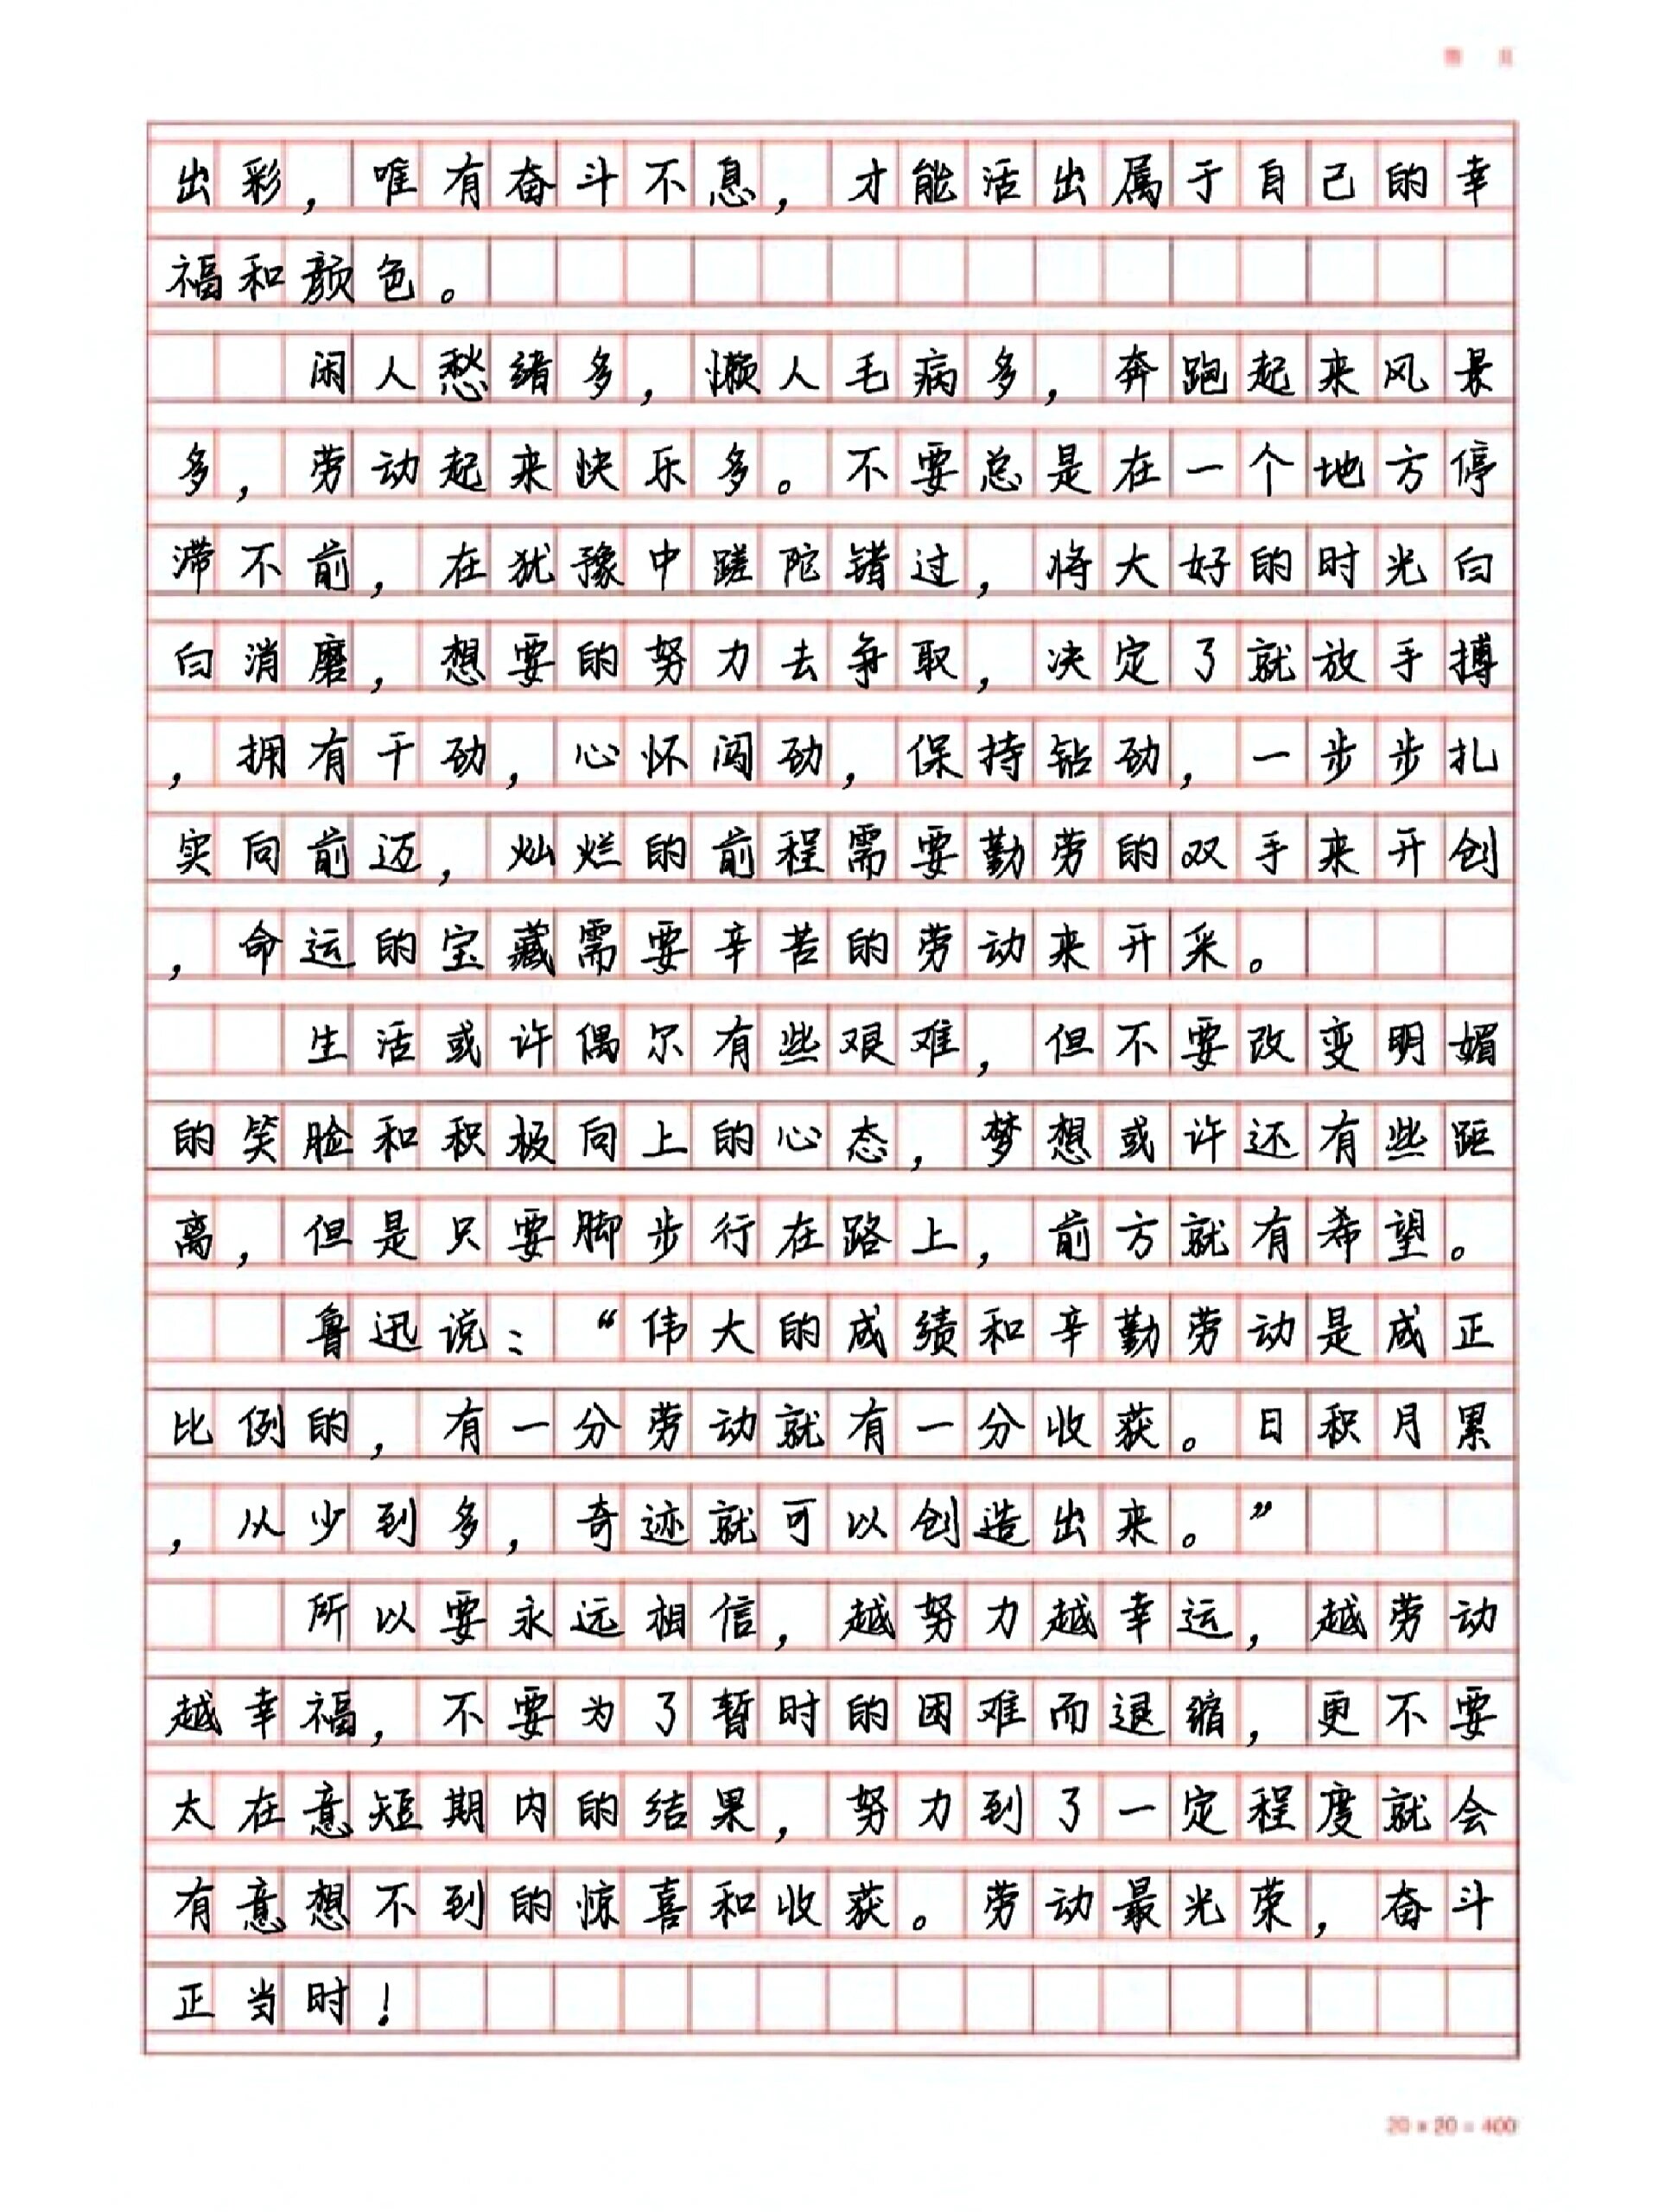 出彩，唯有奋斗不息，才能活出属于自己的幸
福和颜色。
闲人愁绪多，懒人毛病多，奔跑起来风景
多，劳动起来快乐多。不要总是在一个地方停
滞不前，在犹豫中蹉陀错过，将大好的时光白
白消磨，想要的努力去争取，决定了就放手搏
，拥有干劲，心怀闯劲，保持钻劲，一步步扎
实向前迈，灿烂的前程需要勤劳的双手来开创
，命运的宝藏需要辛苦的劳动来开采。
生活或许偶尔有些艰难，但不要改变明媚
的笑脸和积极向上的心态，梦想或许还有些距
离，但是只要脚步行在路上，前方就有希望。
鲁迅说：“伟大的成绩和辛勤劳动是成正
比例的，有一分劳动就有一分收获。日积月累
，从少到多，奇迹就可以创造出来。”
所以要永远相信，越努力越幸运，越劳动
越幸福，不要为了暂时的困难而退缩，更不要
太在意短期内的结果，努力到了一定程度就会
有意想不到的惊喜和收获。劳动最光荣，奋斗
正当时！
20×20=400